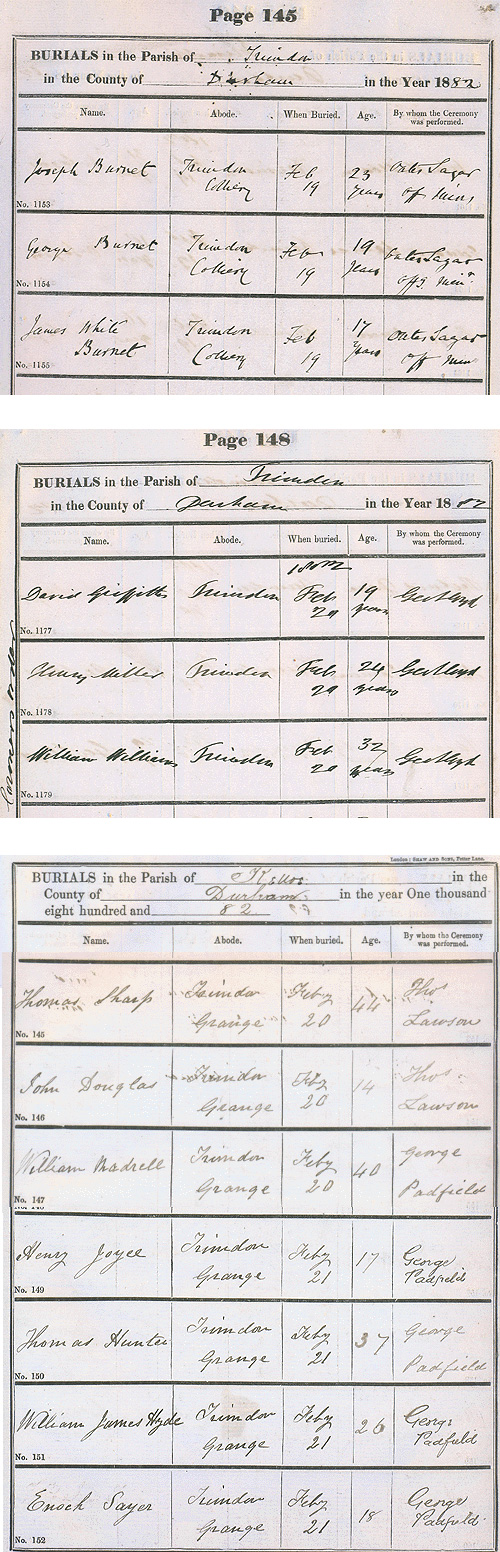 Page 145
BURIALS in the Parish of Trimdon
in the County of Durham in the Year 1882
Name. Abode. When Buried. Age. By whom the Ceremony was performed.
Joseph Burnet Trimdon Feb 23 Oates Sagar
Colliery 19 years off Min
No. 1153
George Burnet Trimdon Feb 19 Oates Sagar
Colliery 19 years offg Minr
No. 1154
James White Trimdon Feb 17 Oates Sagar
Burnet Colliery 19 years off Min
No. 1155
Page 148
BURIALS in the Parish of Trimdon
in the County of Durham in the Year 1882
Name. Abode. When buried. Age. By whom the Ceremony was performed.
1882
David Griffiths Trimdon Feb 19
years
No. 1177
Henry Miller Trimdon Feb
years
No. 1178
William Williams Trimdon Feb 32
years
No. 1179
Coroners order
London: SHAW AND SONS, Fetter Lane.
BURIALS in the Parish of Kelloe in the
County of Durham in the year One thousand
eight hundred and 82
Name. Abode. When buried. Age. By whom the Ceremony was performed.
Thomas Sharp Trimdon Feby 44 Thos
Grange 20 Lawson
No. 145
John Douglas Trimdon Feby 14 Thos
Grange 20 Lawson
No. 146
William Madrell Trimdon Feby 40 George
Grange 20 Padfield
No. 147
Henry Joyce Trimdon Feby 17 George
Grange 21 Padfield
No. 149
Thomas Hunter Trimdon Feby 37 George
Grange 21 Padfield
No. 150
William James Hyde Trimdon Feby 26 George
Grange 21 Padfield
No. 151
Enoch Sayer Trimdon Feby 18 George
Grange 21 Padfield
No. 152